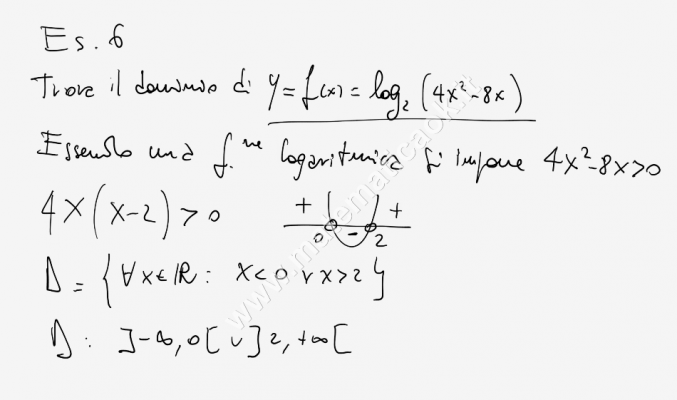 Es. 6
Trova il dominio di y = f(x) = log₂ (4x² - 8x)
Essendo una f.ne logaritmica si impone 4x² - 8x > 0
4x(x-2) > 0 + + 0 - 2
D = {∀x∈ℝ : x<0 ∨ x>2}
D : ]-∞, 0[ ∪ ]2, +∞[
www.matematicaok.it